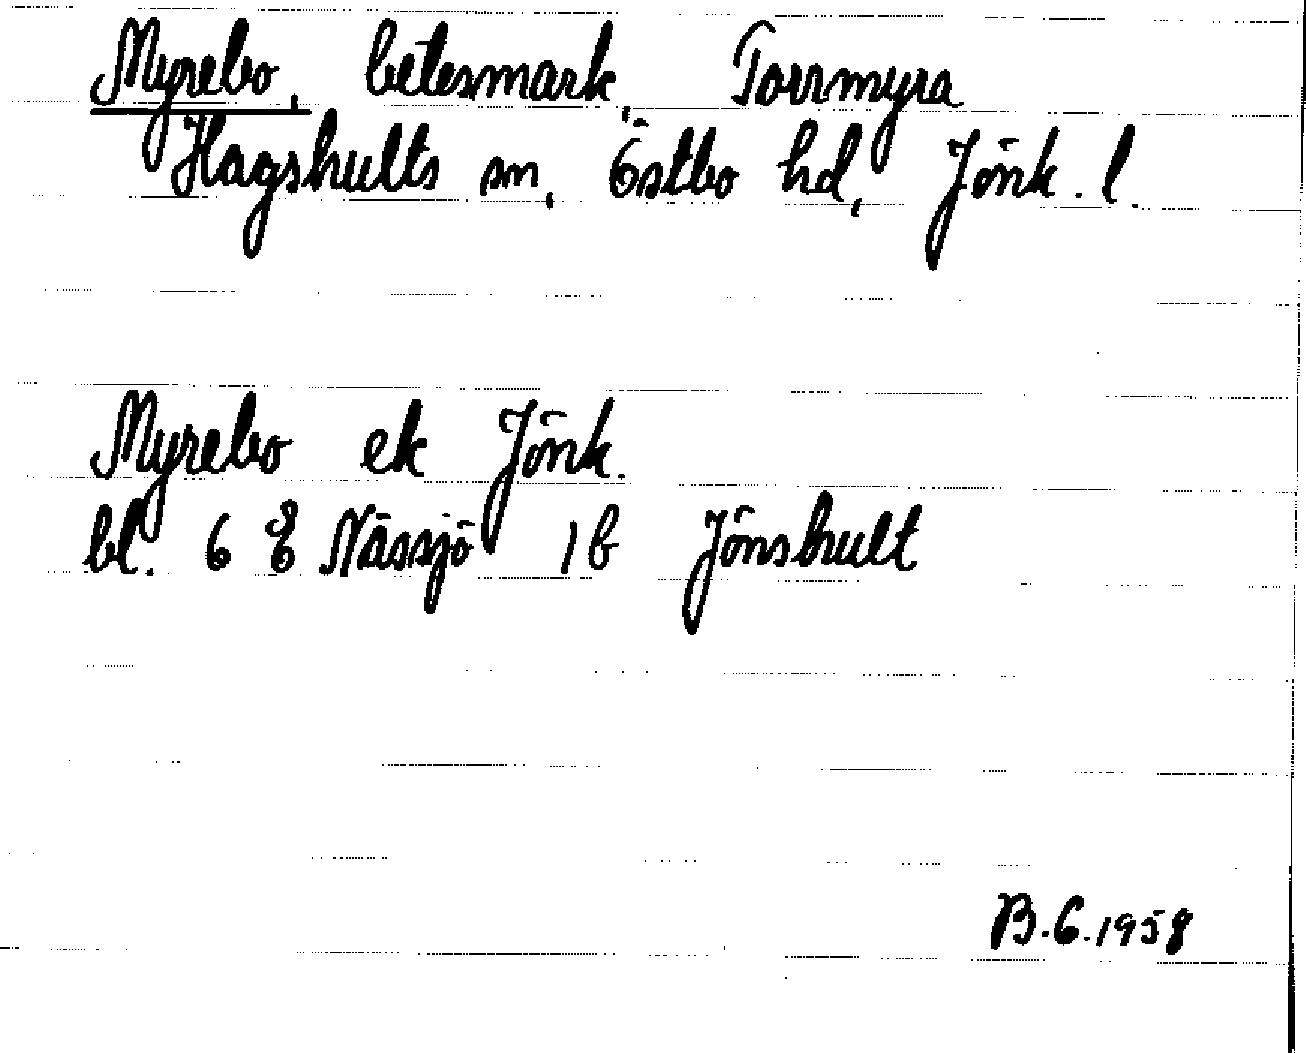 Myrebo, betesmark, Torrmyra
Hagshults sn, Östbo hd, Jönk. l.
Myrebo ek Jönk.
bl. 6 E Nässjö 1 b Jönshult
B.G. 1958